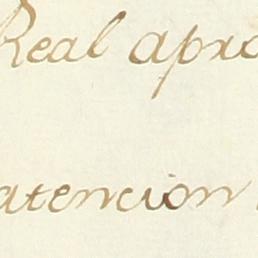 Real apro
atencion